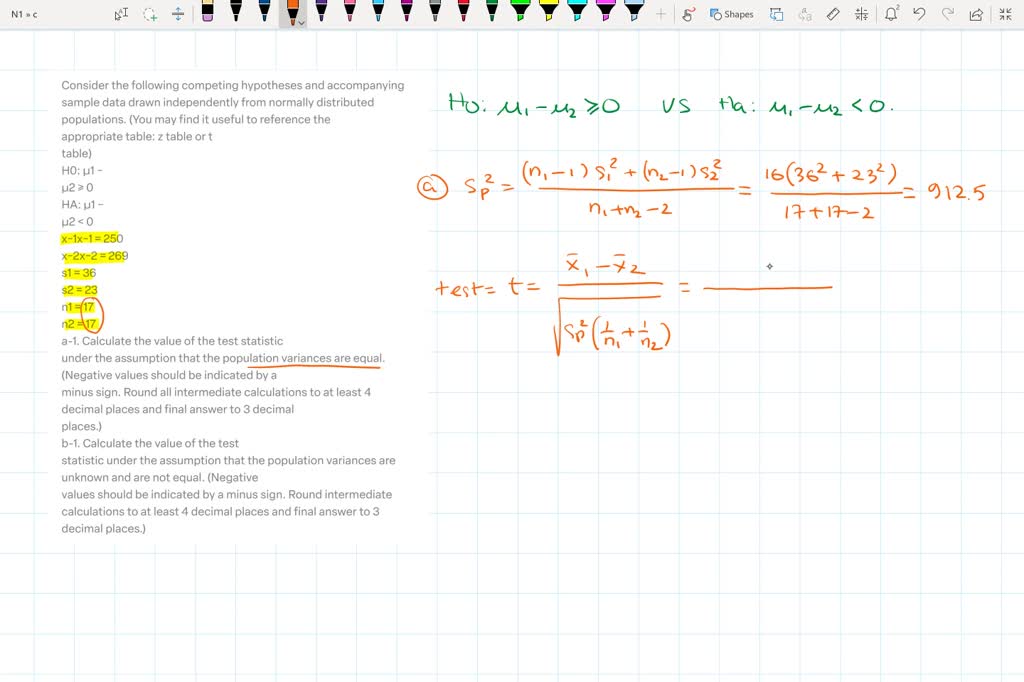 N1 » c
Shapes
Consider the following competing hypotheses and accompanying
sample data drawn independently from normally distributed
populations. (You may find it useful to reference the
appropriate table: z table or t
table)
H0: μ1 −
μ2 ≥ 0
HA: μ1 −
μ2 < 0
x−1x−1 = 250
x−2x−2 = 269
s1 = 36
s2 = 23
n1 = 17
n2 = 17
a-1. Calculate the value of the test statistic
under the assumption that the population variances are equal.
(Negative values should be indicated by a
minus sign. Round all intermediate calculations to at least 4
decimal places and final answer to 3 decimal
places.)
b-1. Calculate the value of the test
statistic under the assumption that the population variances are
unknown and are not equal. (Negative
values should be indicated by a minus sign. Round intermediate
calculations to at least 4 decimal places and final answer to 3
decimal places.)
Ho: μ₁−μ₂ ⩾ 0 VS Ha: μ₁−μ₂ < 0.
ⓐ Sp² = (n₁−1) S₁² + (n₂−1) S₂² / n₁+n₂−2 = 16(36² + 23²) / 17+17−2 = 912.5
test = t = x̄₁ − x̄₂ / √Sp²(1/n₁ + 1/n₂) =